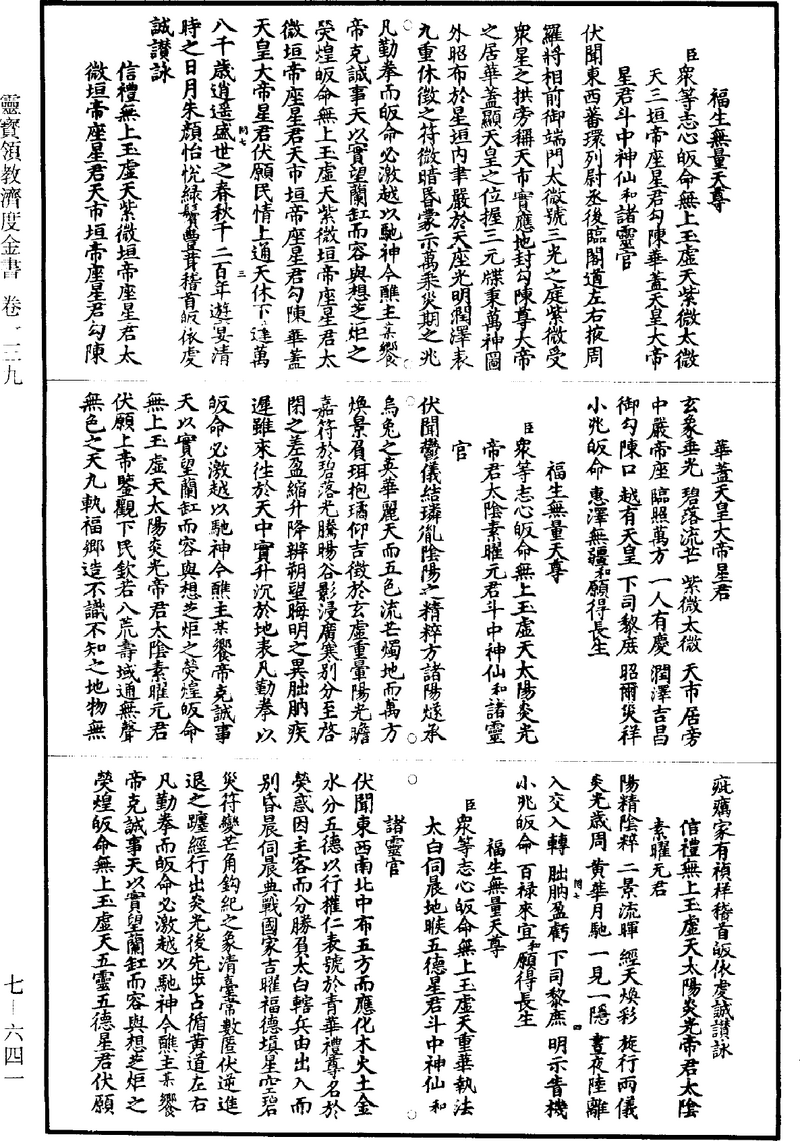 福生無量天尊
臣衆等志心皈命無上玉虛天紫微太微
天三垣帝座星君勾陳華蓋天皇大帝
星君斗中神仙和諸靈官
伏聞東西蕃環列尉丞後臨閣道左右掖周
羅將相前御端門太微號三光之庭紫微受
衆星之拱旁稱天市實應地封勾陳尊大帝
之居華蓋顯天皇之位握三元牒秉萬神圖
外昭布於星垣内聿嚴於天座光明潤澤表
九重休徵之符微暗昏蒙示萬乘災期之兆
凡勤拳而皈命必激越以馳神今醮主某饗
帝克誠事天以實望蘭缸而容與想芝炬之
熒煌皈命無上玉虛天紫微垣帝座星君太
微垣帝座星君天市垣帝座星君勾陳華蓋
天皇大帝星君伏願民情上通天休下逮萬
八千歲逍遥盛世之春秋千二百年遊宴清
時之日月朱顏怡悦緑鬢豐茸稽首皈依虔
誠讃詠
信禮無上玉虛天紫微垣帝座星君太
微垣帝座星君天市垣帝座星君勾陳
閏七
三
華蓋天皇大帝星君
玄象垂光 碧落流芒 紫微太微 天市居旁
中嚴帝座 臨照萬方 一人有慶 潤澤吉昌
御勾陳口 越有天皇 下司黎庶 昭爾災祥
小兆皈命 惠澤無疆 和願得長生
福生無量天尊
臣衆等志心皈命無上玉虛天太陽炎光
帝君太陰素曜元君斗中神仙和諸靈
官
伏聞鬱儀結璘胤陰陽之精粹方諸陽燧承
烏兔之英華麗天而五色流芒燭地而萬方
煥景肩珥抱璚仰吉徵於玄虛重暈陽光瞻
嘉符於碧落光騰暘谷影浸廣寒别分至啓
閉之差盈縮升降辨朔望晦明之異朏朒疾
遲雖來往於天中實升沉於地表凡勤拳以
皈命必激越以馳神今醮主某饗帝克誠事
天以實望蘭缸而容與想芝炬之熒煌皈命
無上玉虛天太陽炎光帝君太陰素曜元君
伏願上帝鑒觀下民欽若八荒壽域通無聲
無色之天九軌福鄉造不識不知之地物無
疵癘家有禎祥稽首皈依虔誠讃詠
信禮無上玉虛天太陽炎光帝君太陰
素曜元君
陽精陰粹 二景流暉 經天煥彩 旋行兩儀
炎光歲周 黄華月馳 一見一隱 晝夜陸離
入交入轉 朏朒盈虧 下司黎庶 明示眚機
小兆皈命 百禄來宜 和願得長生
閏七
四
福生無量天尊
臣衆等志心皈命無上玉虛天重華執法
太白伺晨地睺五德星君斗中神仙和
諸靈官
伏聞東西南北中布五方而應化木火土金
水分五德以行權仁表號於青華禮尊名於
熒惑因主客而分勝肩太白轄兵由出入而
别昏晨伺晨典戰國家吉曜福德填星空碧
災符變芒角鈎紀之象清臺常數匿伏逆進
退之躔經行出炎光後先步占循黄道左右
凡勤拳而皈命必激越以馳神今醮主某饗
帝克誠事天以實望蘭缸而容與想芝炬之
熒煌皈命無上玉虛天五靈五德星君伏願
靈寶領教濟度金書 卷一二九
七—六四一